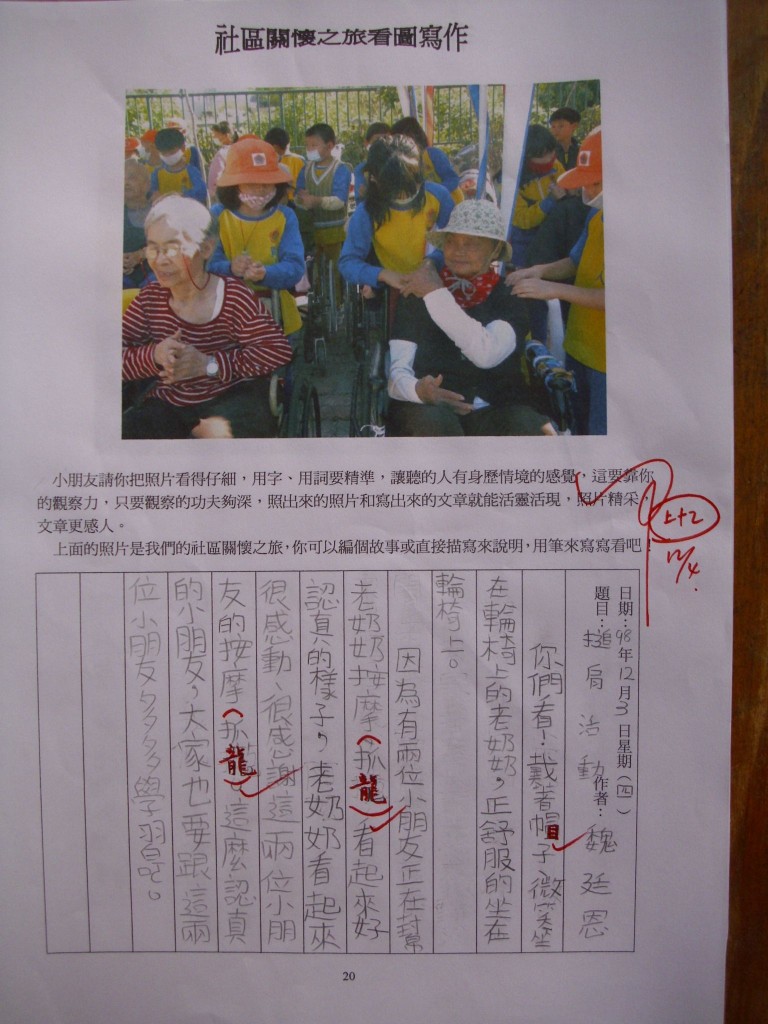 社區關懷之旅看圖寫作
小朋友請你把照片看得仔細，用字、用詞要精準，讓聽的人有身歷情境的感覺，這要靠你
的觀察力，只要觀察的功夫夠深，照出來的照片和寫出來的文章就能活靈活現，照片精采，
文章更感人。
上面的照片是我們的社區關懷之旅，你可以編個故事或直接描寫來說明，用筆來寫寫看吧！
上+2
12/4
日期：98年12月3日星期（四）
題目：搥肩活動 作者：魏廷恩
你們看！戴著帽子、微笑坐
在輪椅上的老奶奶，正舒服的坐在
輪椅上。
因為有兩位小朋友正在幫
老奶奶按摩（抓龍）看起來好
認真的樣子，老奶奶看起來
很感動、很感謝這兩位小朋
友的按摩（抓龍）這麼認真
的小朋友，大家也要跟這兩
位小朋友多多多學習吧。
20